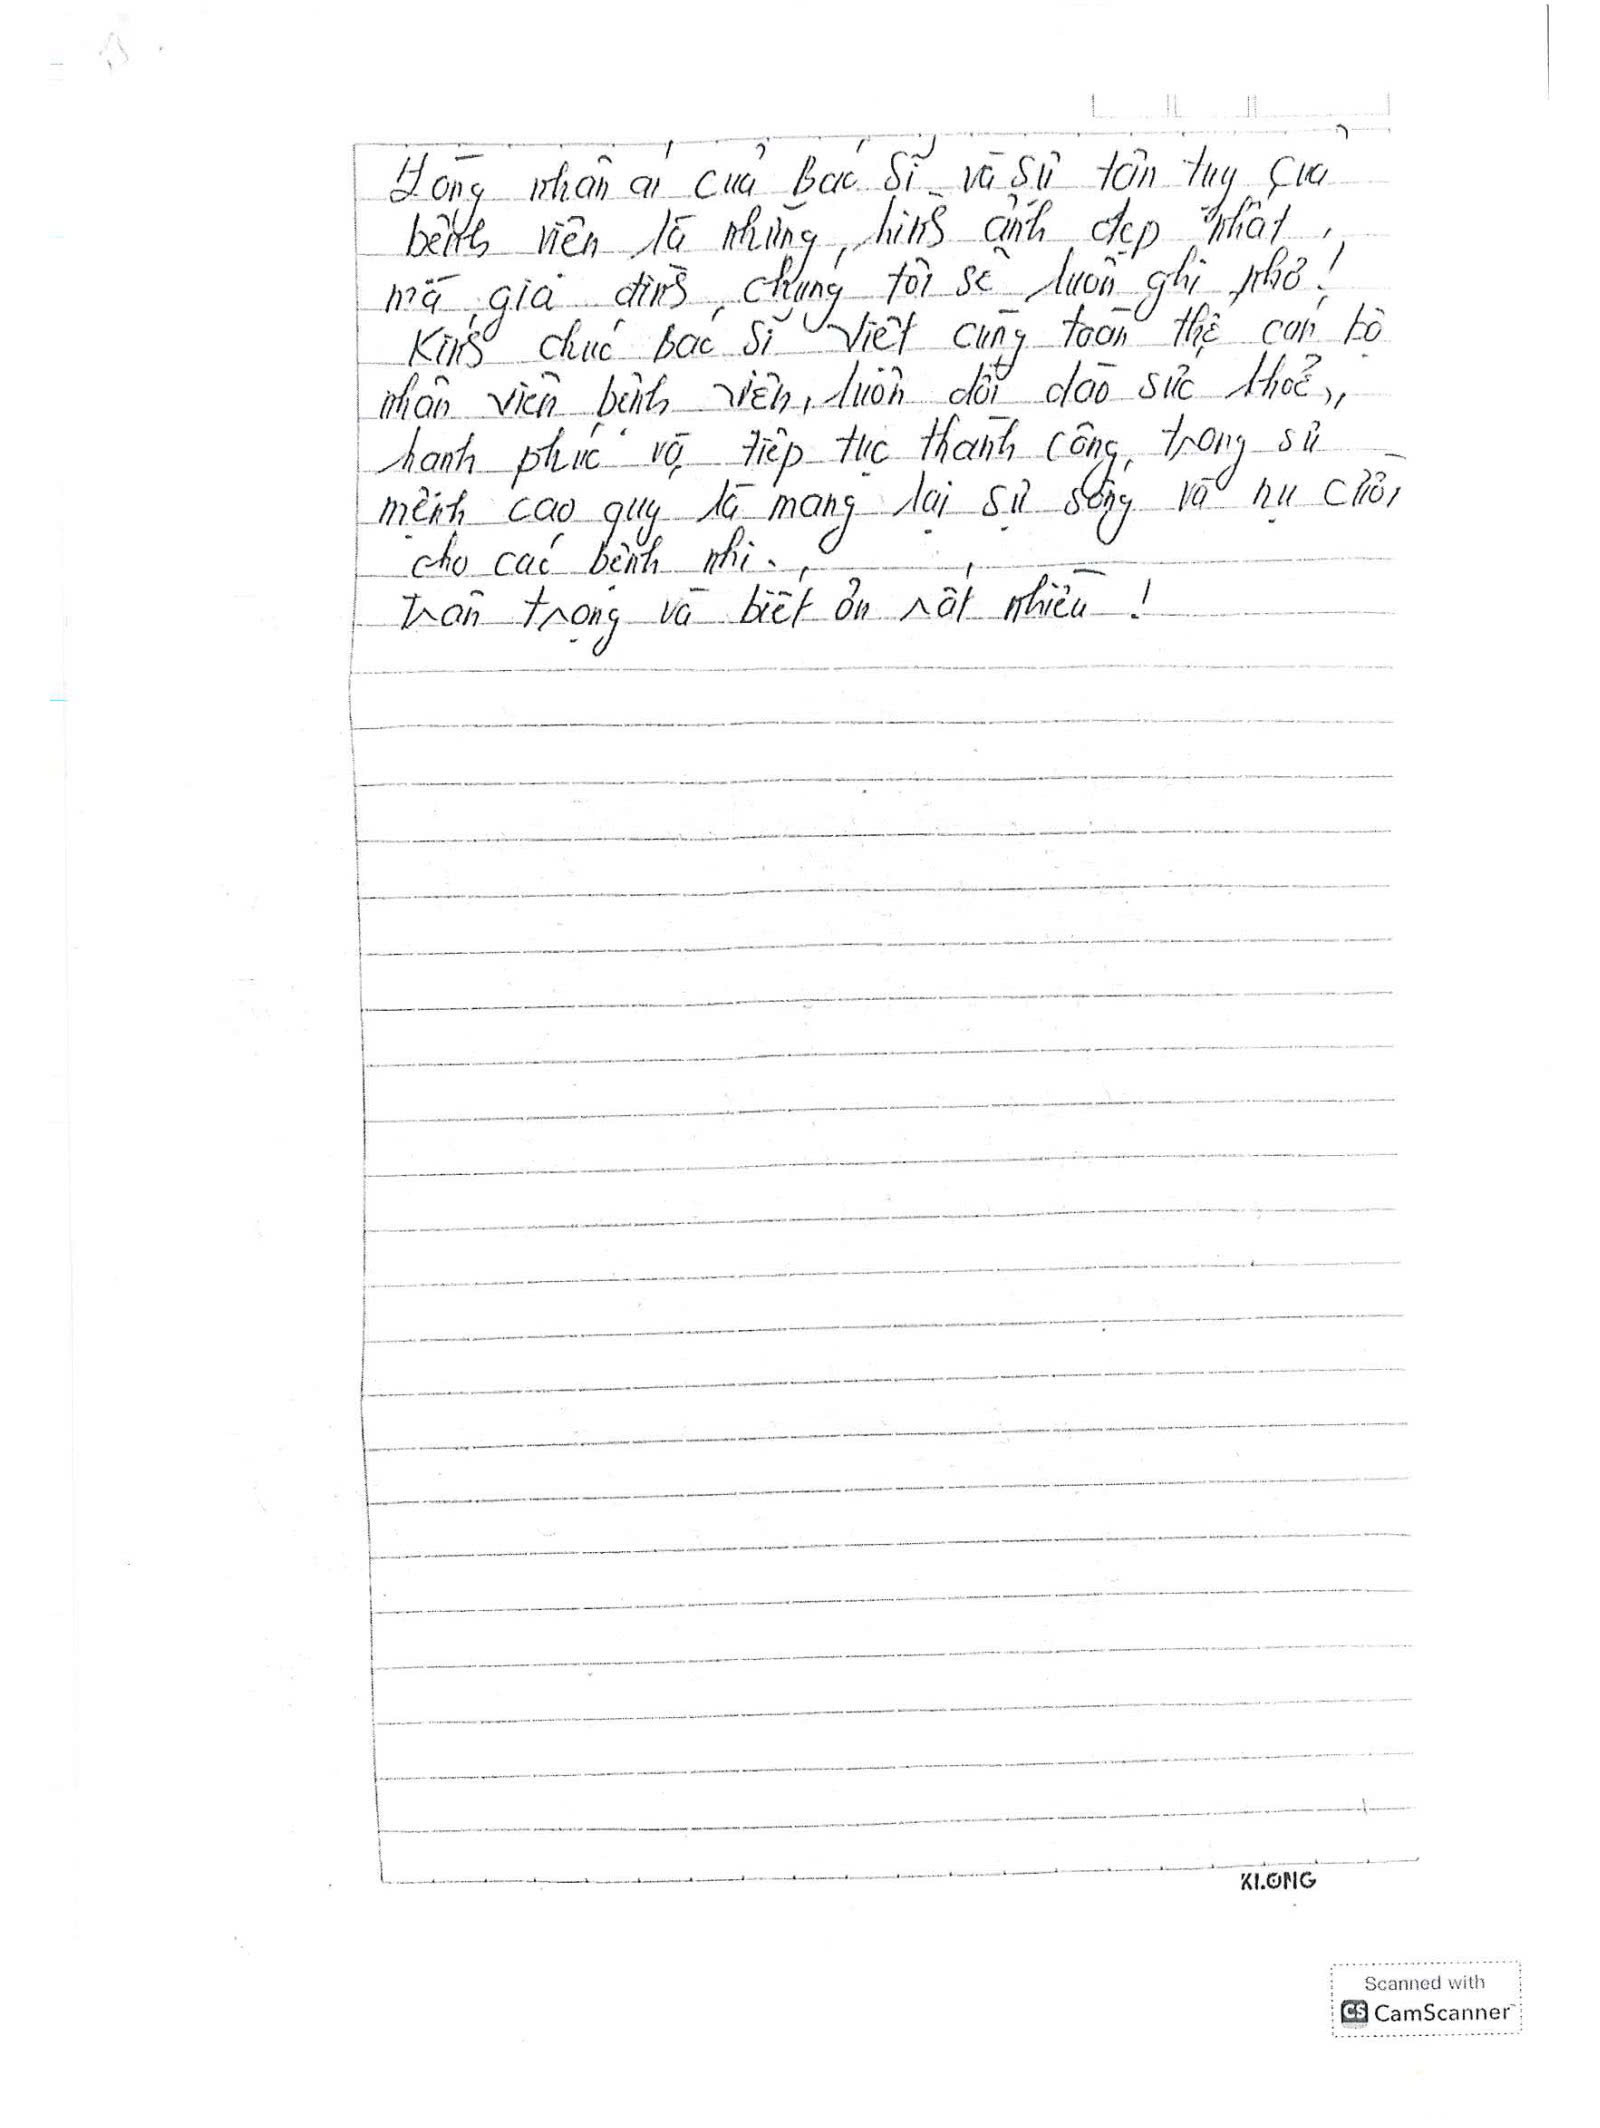 Lòng nhân ái của Bác sĩ và sự tận tụy của
bệnh viện là những hình ảnh đẹp nhất
mà gia đình chúng tôi sẽ luôn ghi nhớ!
Kính chúc bác sĩ Việt cùng toàn thể cán bộ
nhân viên bệnh viện, luôn dồi dào sức khoẻ,
hạnh phúc và tiếp tục thành công trong sứ
mệnh cao quý là mang lại sự sống và nụ cười
cho các bệnh nhi.
Trân trọng và biết ơn rất nhiều!
KLONG
Scanned with
CS CamScanner